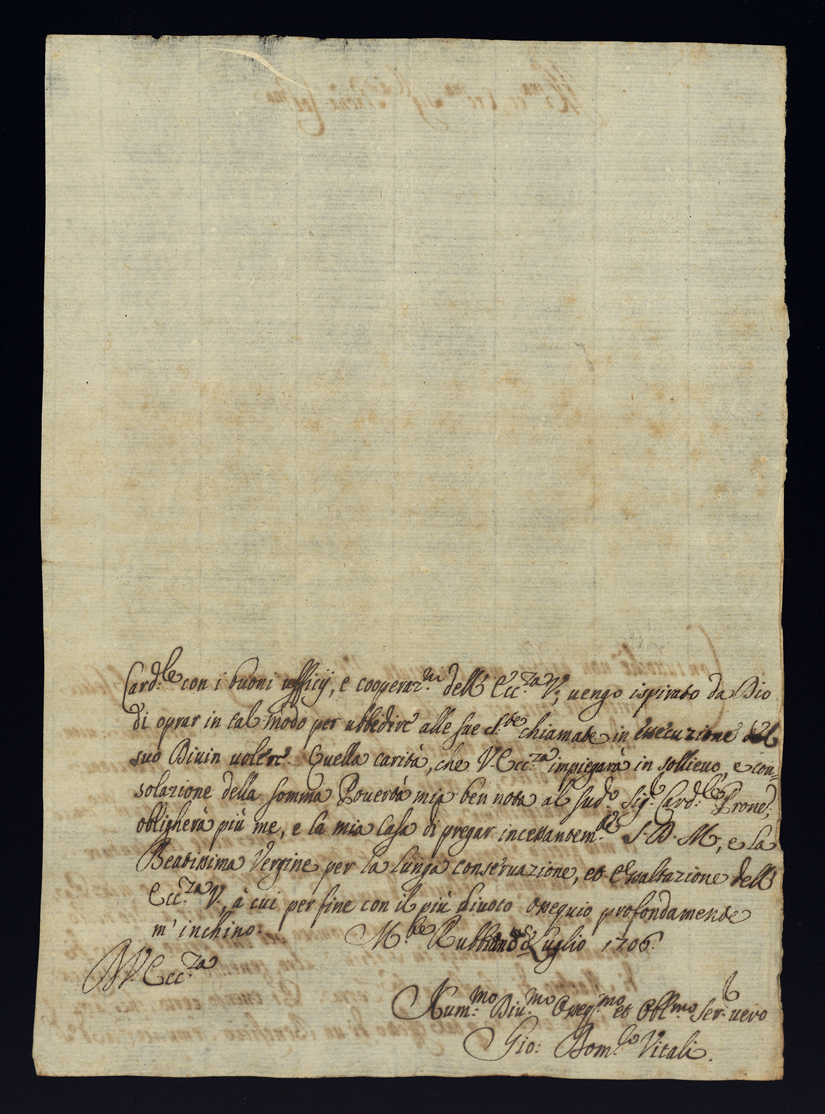 Card.le con i buoni ufficij, e cooperaz.ni dell' Ecc.za V., vengo ispirato da Dio
di oprar in tal modo per ubbedire alle sue S.te chiamate in essecuzione del
suo Divin volere. Quella carità, che V. Ecc.za impiegarà in sollievo, e con-
solazione della somma Povertà mia ben nota al sud.o Sig.r Card.le Prone,
obligherà più me, e la mia Casa di pregar incessantem.te S. D. M., e la
Beatissima Vergine per la lunga conservazione, et Esaltazione dell'
Ecc.za V., à cui per fine con il più divoto ossequio profondamente
m'inchino. M.te Rubbiano Luglio 1706
D. V. Ecc.za
Hum.mo Div.mo Osseq.mo et Obl.mo Ser. vero
Gio: Dom.co Vitali.